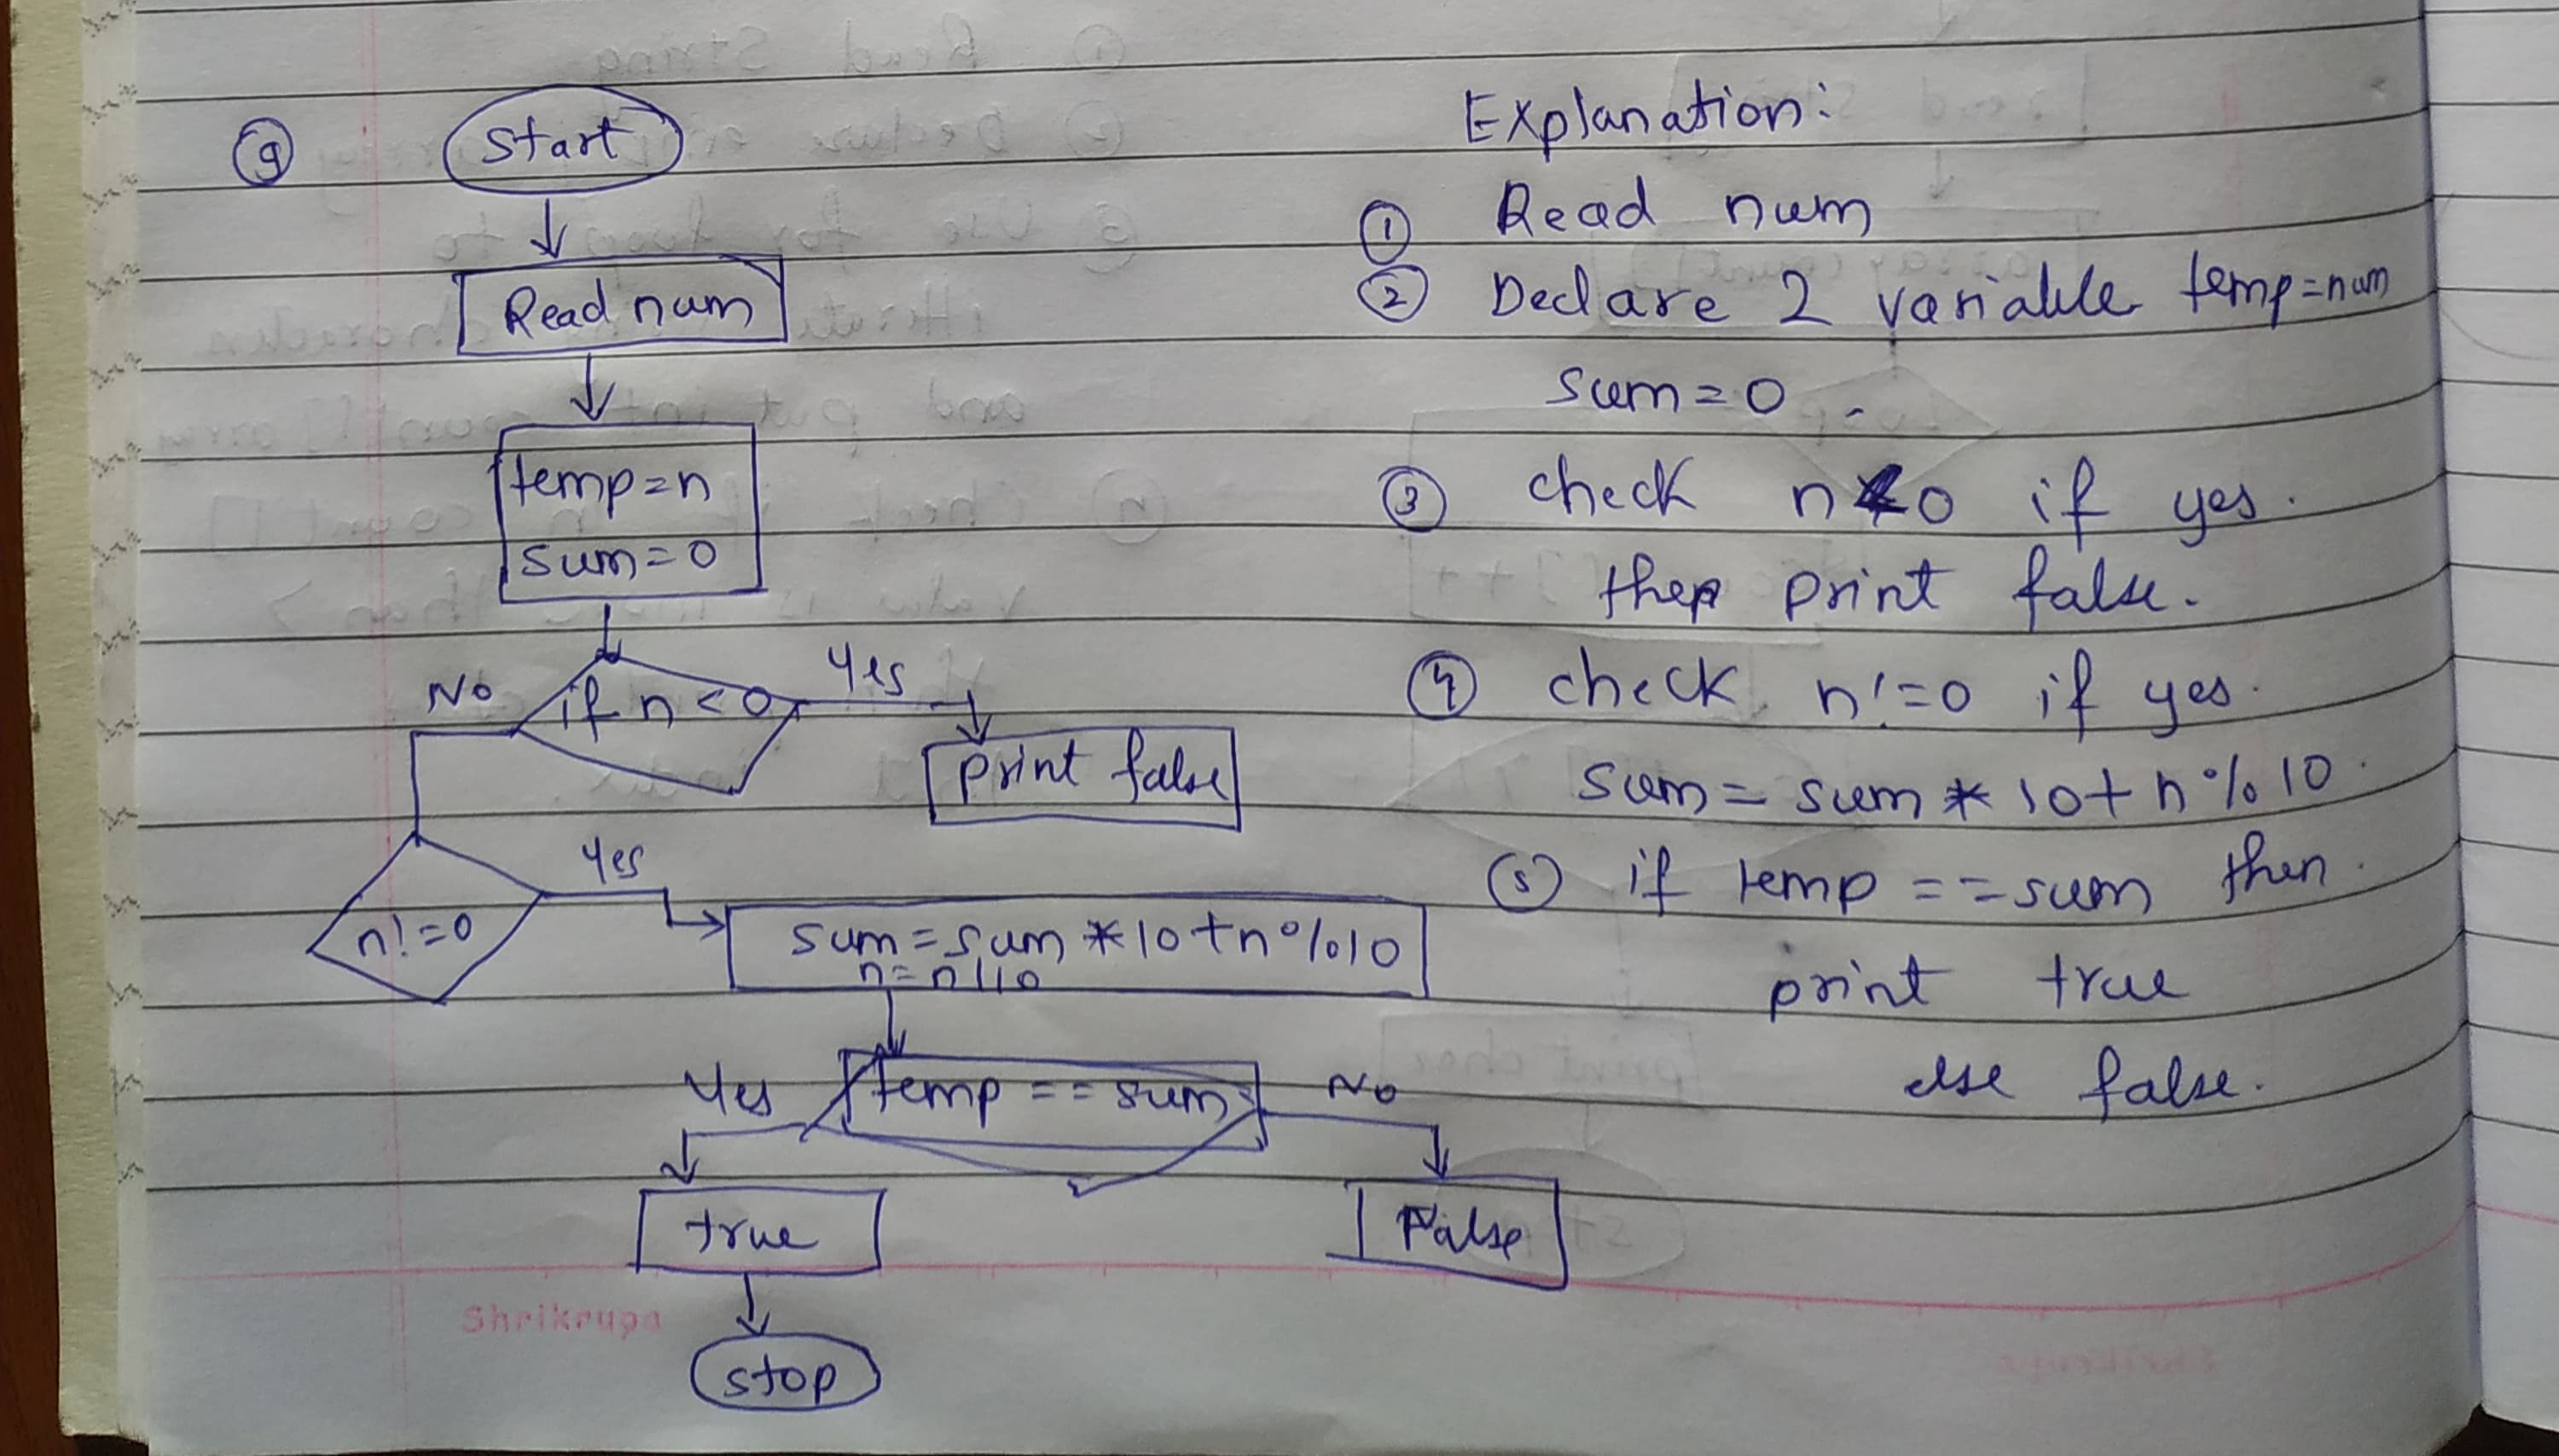 9
Start
Read num
temp=n
sum=0
if n<0
No
Yes
print false
n!=0
Yes
sum=sum*10+n%10
n=n/10
temp==sum
Yes
No
true
False
stop
Shrikrupa
Explanation:
① Read num
② Declare 2 variable temp=num
sum=0.
③ check n<0 if yes.
then print false.
④ check n!=0 if yes.
sum=sum*10+n%10.
⑤ if temp==sum then.
print true
else false.